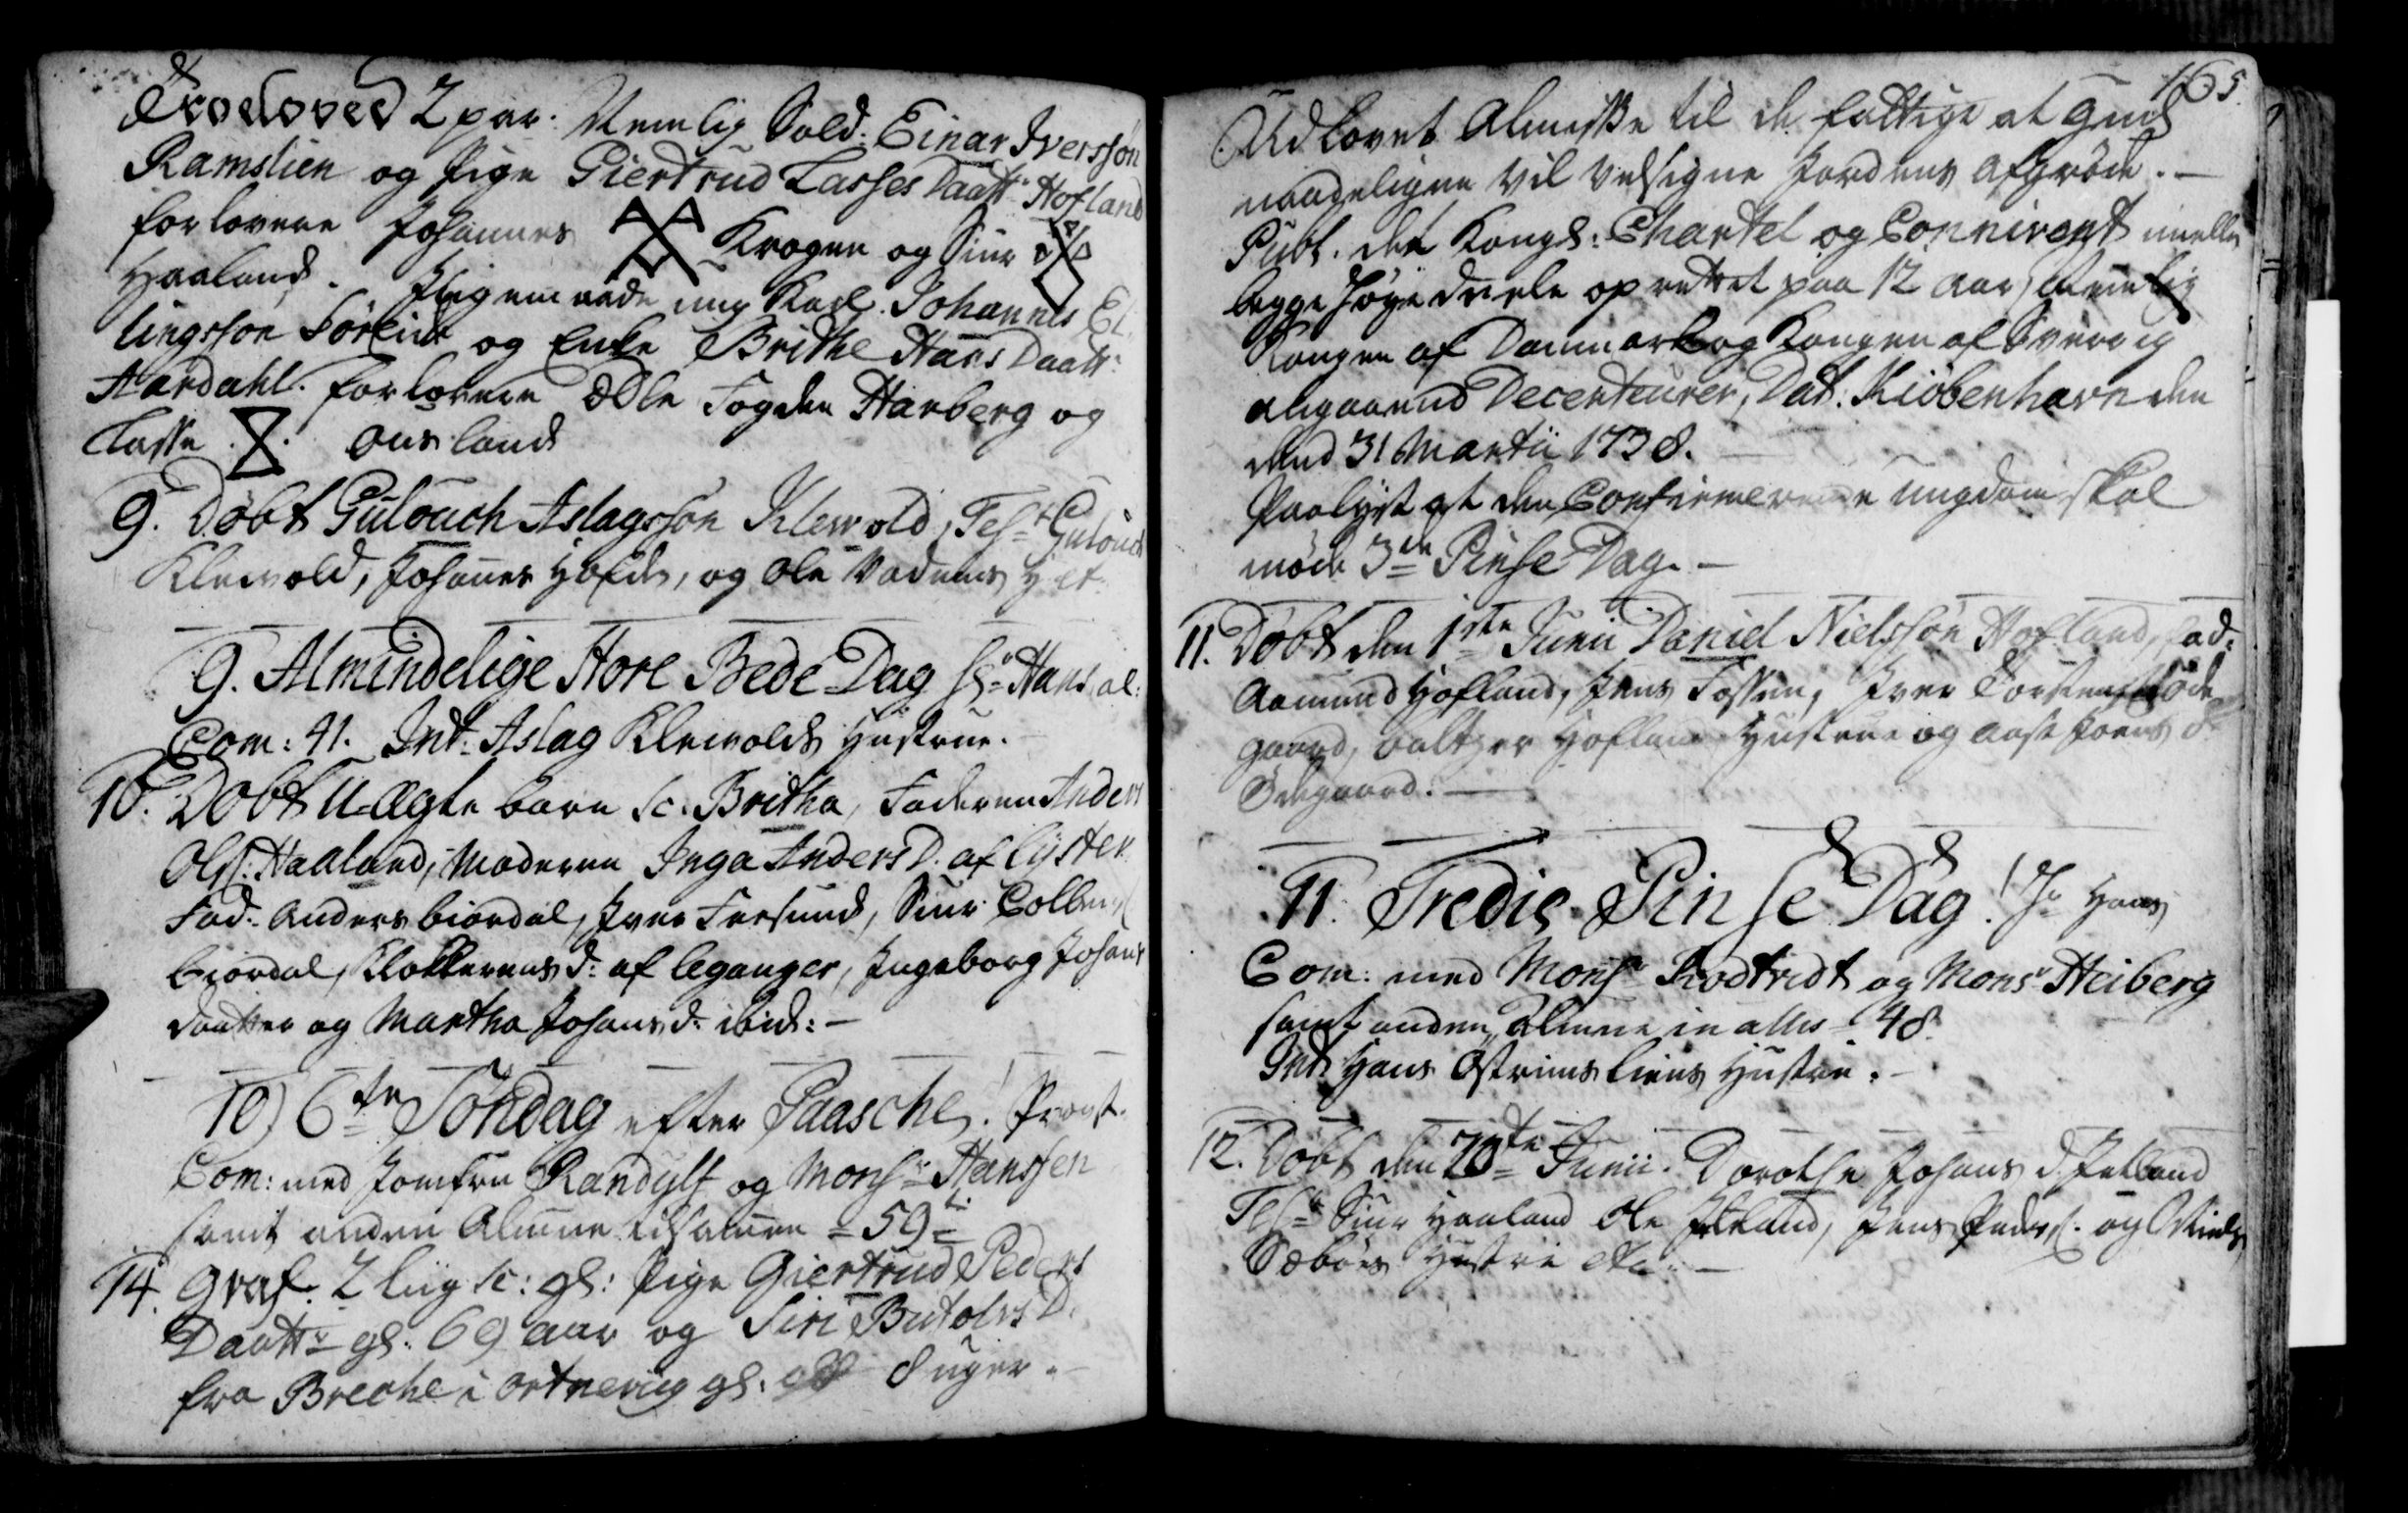 Troeloved 2 par. Nemlig Sold. Einar Iverssøn
Ramslien og Pige Giertrud Lasses Daatt. Hofland
forlovere Johannes Krogen og Siur
Haaland. Ligemaade ung Karl Johannes El
lingssøn Føreid og Enke Brithe Hans Daatt.
Aardahl. forlovere Ole Fogden Harberg og
Lasse Ousland
9. Døbt Gulouch Aslagssøn Klewold, Test. Gulouch
Klewold, Johannes, og Ole
9. Almindelige Store Bede-Dag Hr. Hans
Com: 41. Int: Aslag Klewolds Hustrue.
10. Døbt U-Ægte barn sc. Britha, Faderen Anders
Olss. Haaland, Moderen Inga Anders D. af Lyster
Fad. Anders Biørdal, Iver Fresund, Siur
Biørdal, Klokkerens d: af Leganger, Ingeborg Johans
daatter og Martha Johans d. ibid: -
10) 6te Søndag efter Paasche. Provst.
Com: med Jomfru Randulf og Monsr. Hanssen
samt anden Almue tilsamen = 59 =
14. Graf. 2 Liig sc: gl: Pige Giertrud Peders
Daattr. gl. 69 aar og Siri Butolvs D.
fra Breche i Ortnevig gl. 8 uger. -
165.
Udlovet Almisse til de fattige at Gud
naadeligen vil velsigne Jordens Afgrøde. -
Publ. det Kongl: Chartel og Convivent imellem
begge høye deele oprettet paa 12 aar, Nemlig
Kongen af Danmark og Kongen af Sverrig
angaaende Decerteurer, Dat: Kiøbenhavn den
dend 31 Martii 1738.
Paalyst at den Confirmerende ungdom skal
møde 3de Pinse Dag. -
11. Døbt den 1ste Junii Daniel Nielssøn Hofland, fad:
Aamund Hofland, Jens Fossen, Iver Torstens Øde
gaard, Baltzer Hofland Hustrue og Aase Joens d.
Ødegaard. -
11. Tredie Pinse Dag! Hr. Hans
Com: med Monsr. Frodtredt og Monsr. Heiberg
samt anden Almue in alles = 48.
Int: Hans Østrimsliens Hustrue. -
12. Døbt den 20de Junii. Dorothe Johans d. Jetland
Test. Siur Haaland Ole Jetland, Jens Peders. og Niels
Sæbøes Hustrue etc. -